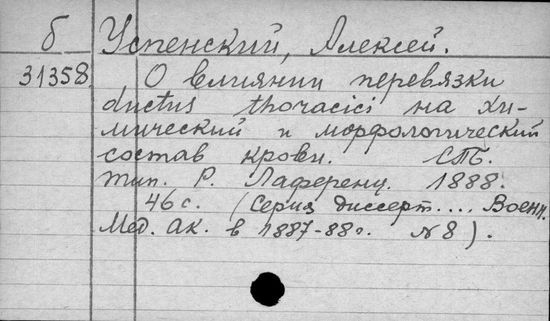 б Успенский, Алексей.
31358 О влиянии перевязки
ductus thoracici на хи-
мический и морфологический
состав крови. СПБ.
тип. Р. Лаференц. 1888.
46 с. (Серия диссерт.... Военн.
Мед. Ак. в 1887-88 г. № 8).